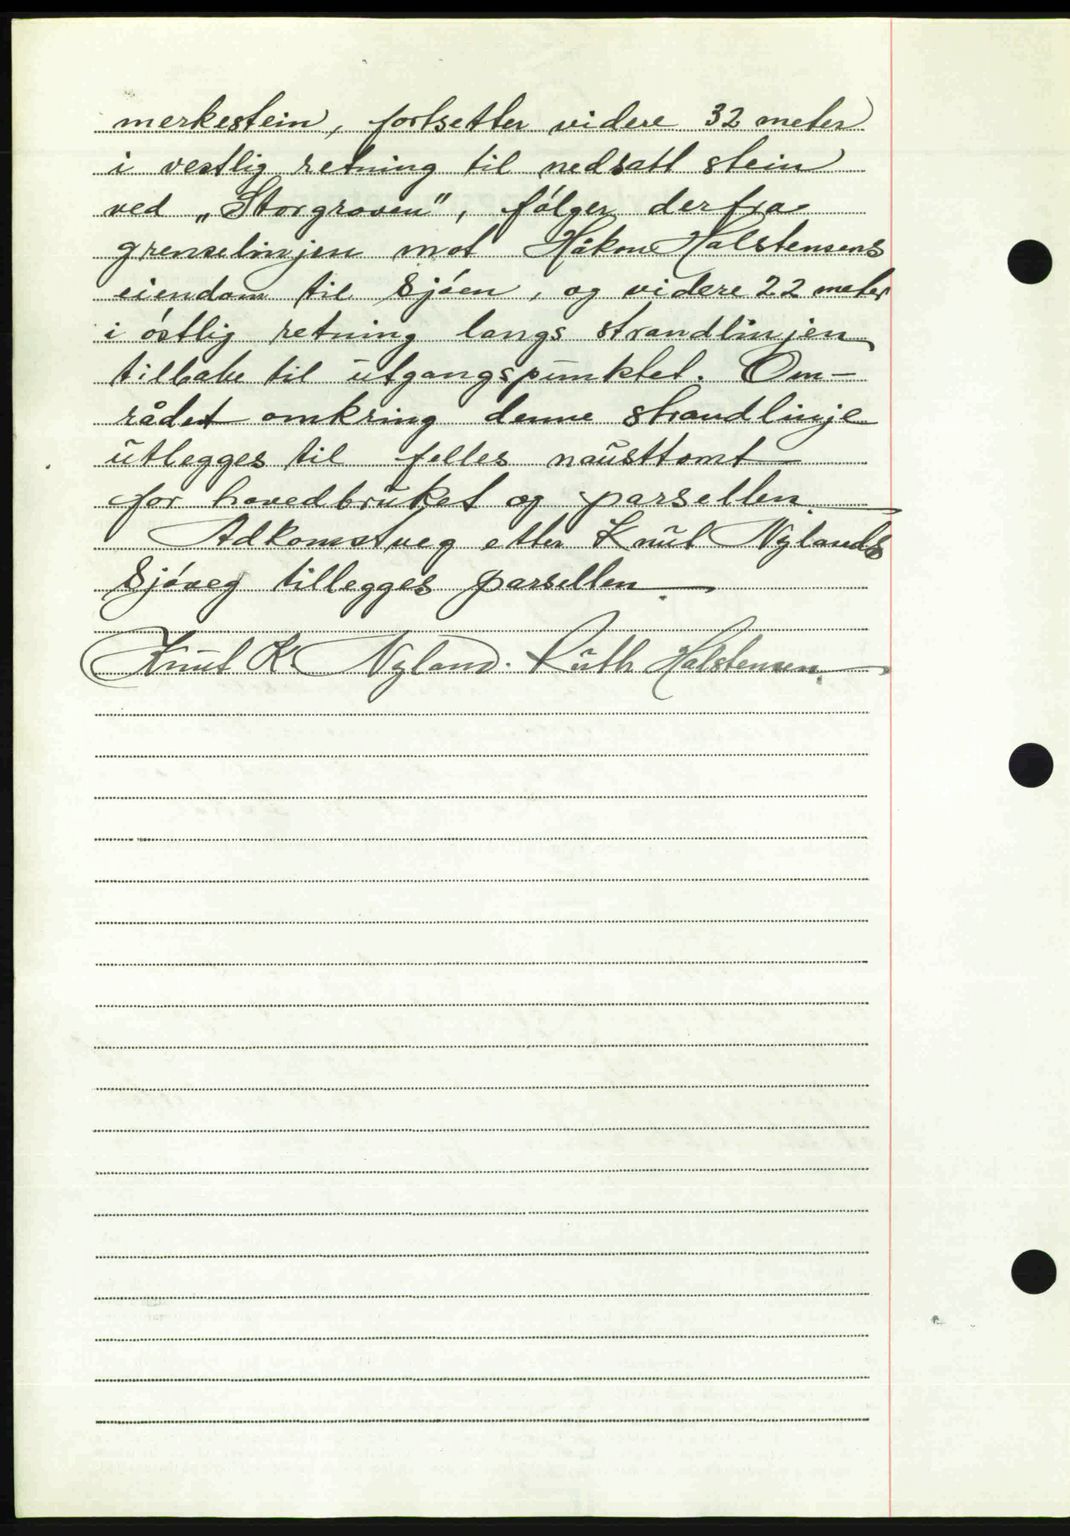 merkestein, fortsetter videre 32 meter
i vestlig retning til nedsatt stein
ved „Storgroven", følger derfra
grenselinjen mot Håkon Halstensens
eiendom til Sjøen, og videre 22 meter
i østlig retning langs strandlinjen
tilbake til utgangspunktet. Om-
rådet omkring denne strandlinje
utlegges til felles nausttomt
for hovedbruket og parsellen.
Adkomstveg etter Knut Nylands
Sjøveg tillegges parsellen.
Knut K. Nyland. Ruth Halstensen.